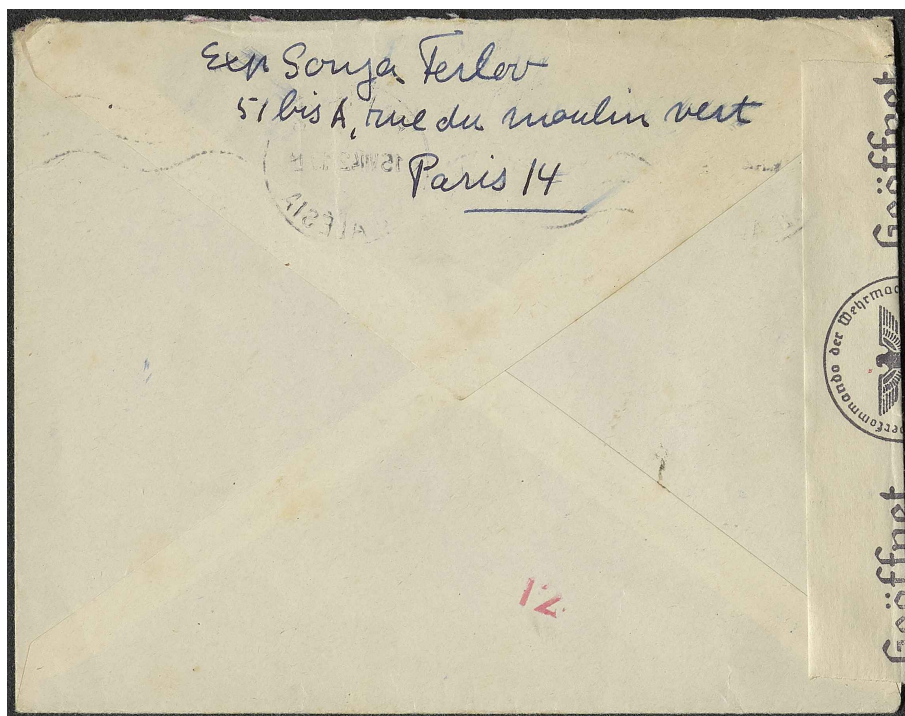 Exp Sonja Ferlov
51 bis A, rue du moulin vert
Paris 14
ALESIA
Geöffnet
Oberkommando der Wehrmacht
Geöffnet
12